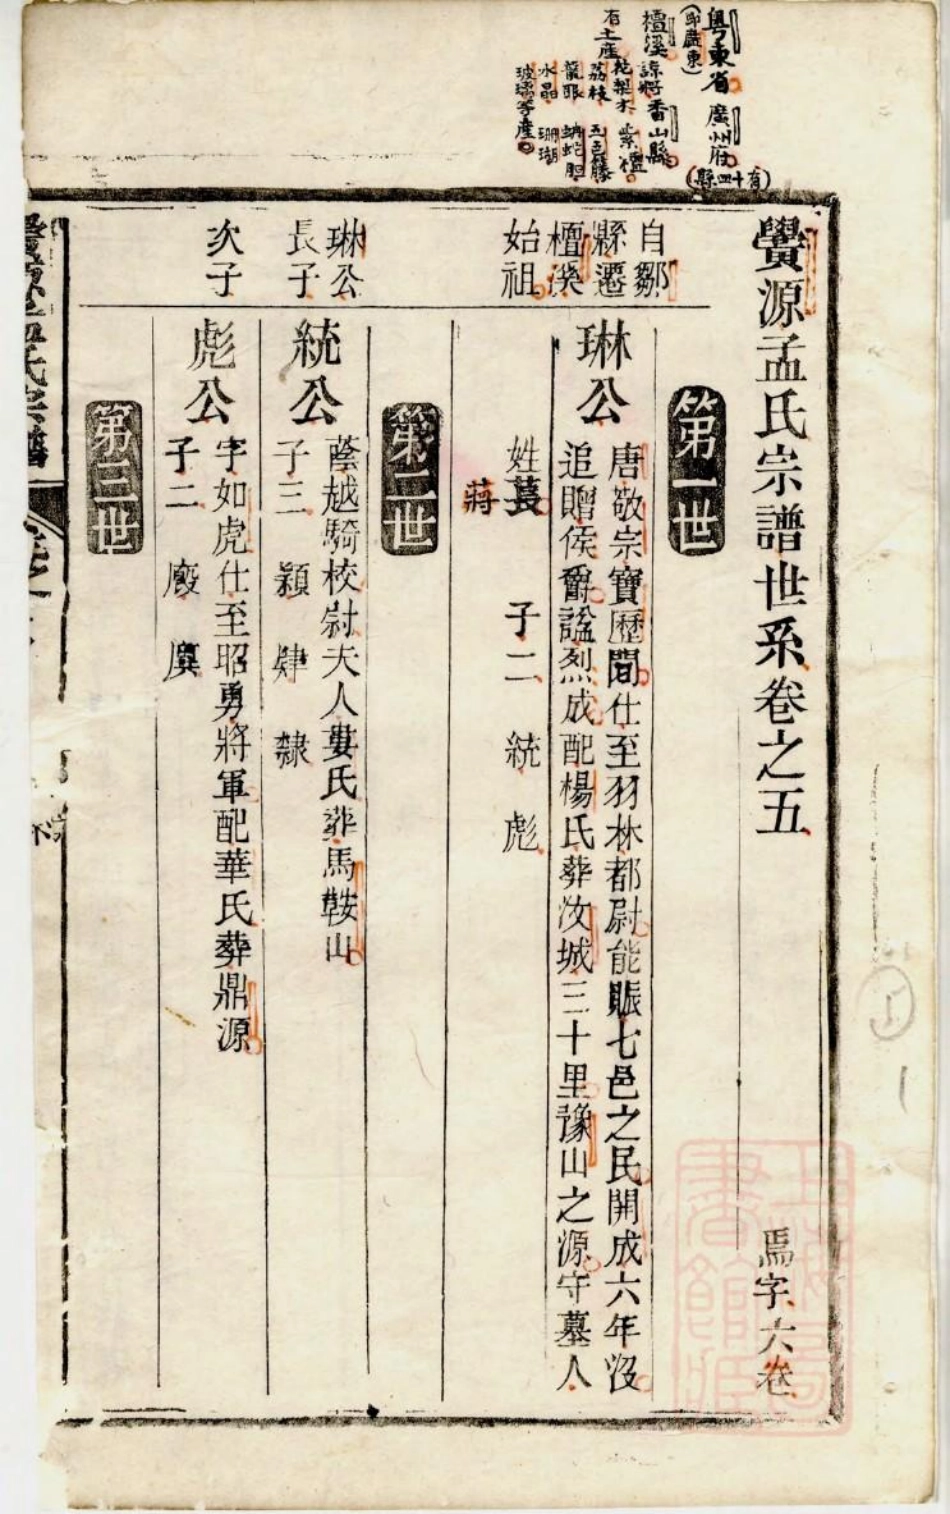 粵東省 廣州府
(即廣東)
(縣四十有)
檀溪 諒將香山縣
有土產花梨木 紫檀
荔枝 五色籐
龍眼 蚺蛇胆
水晶 珊瑚
玻璃等產
源孟氏宗譜世系卷之五
焉字六卷
第一世
自鄒
縣遷
檀溪
始祖
琳公
唐敬宗寶歷間仕至羽林都尉能賑七邑之民開成六年沒
追贈侯爵諡烈成配楊氏葬汝城三十里豫山之源守墓人
姓萇 子二 統 彪
蔣
第二世
琳公
長子
統公
蔭越騎校尉夫人婁氏葬馬鞍山
子三 穎 肄 隸
次子
彪公
字如虎仕至昭勇將軍配華氏葬鼎源
子二 廄 廙
第三世
氏宗譜